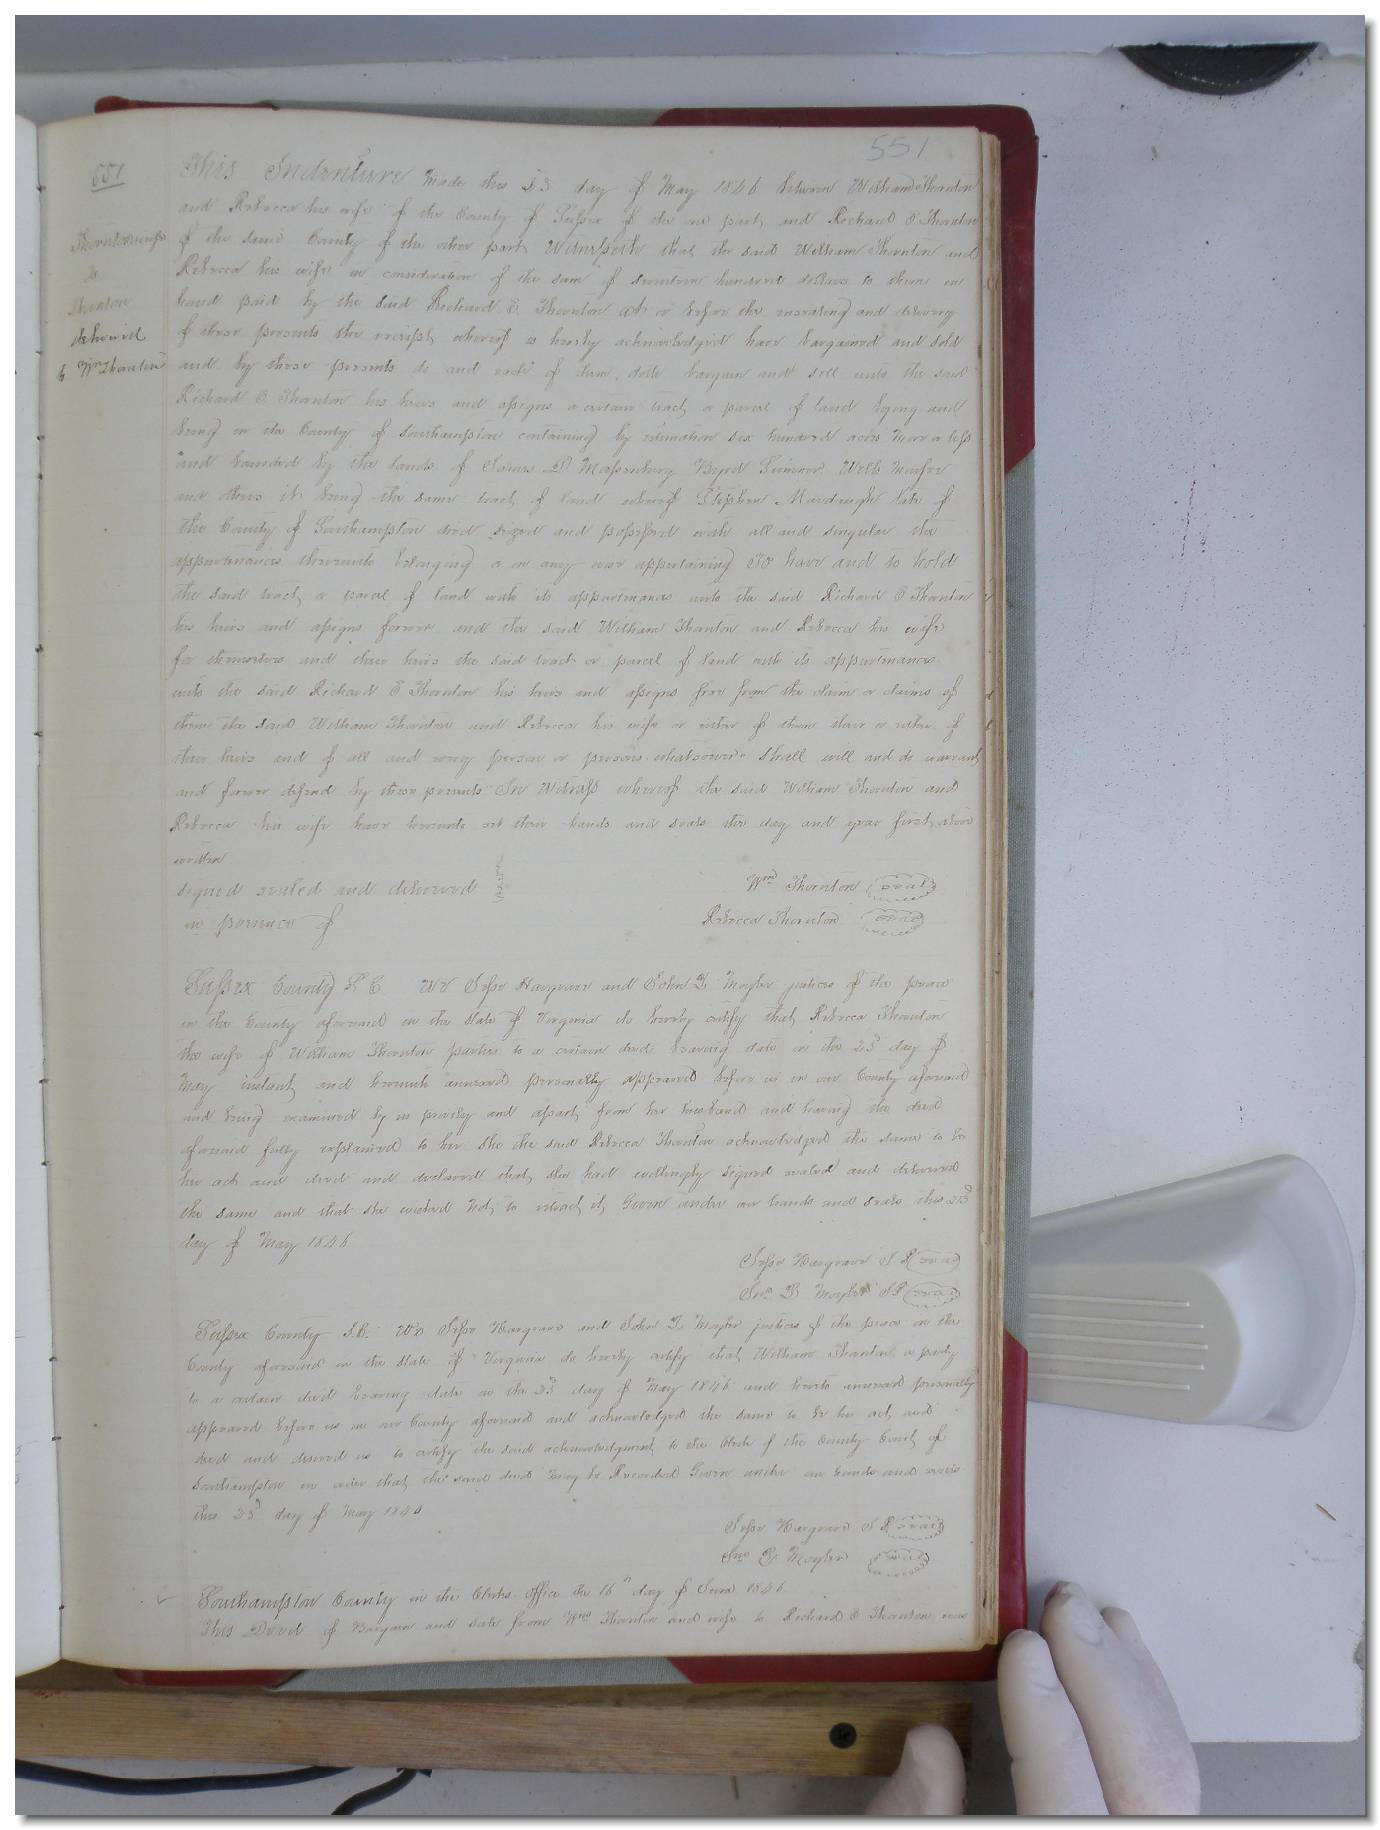 551
551
Thornton & wife
to
Thornton
delivered
to Wm Thornton
This Indenture made this 23 day of May 1846 between William Thornton
and Rebecca his wife of the County of Sussex of the one part, and Richard E Thornton
of the same County of the other part Witnesseth that the said William Thornton and
Rebecca his wife in consideration of the sum of seventeen hundred dollars to them in
hand paid by the said Richard E. Thornton at or before the ensealing and delivery
of these presents the receipt whereof is hereby acknowledged have bargained and sold
and by these presents do and each of them, doth bargain and sell unto the said
Richard E. Thornton his heirs and assigns a certain tract or parcel of land lying and
being in the County of Southampton containing by estimation six hundred acres more or less
and bounded by the lands of James D Massenburg
and others it being the same tract of land whereof Stephen late of
the County of Southampton died seized and possessed with all and singular the
appurtenances thereunto belonging or in any wise appertaining To have and to hold
the said tract or parcel of land with its appurtenances unto the said Richard E Thornton
his heirs and assigns forever and the said William Thornton and Rebecca his wife
for themselves and their heirs the said tract or parcel of land with its appurtenances
unto the said Richard E Thornton his heirs and assigns free from the claim or claims of
them the said William Thornton and Rebecca his wife or either of them their or either of
their heirs and of all and every person or persons whatsoever shall will and do warrant
and forever defend by these presents In Witness whereof the said William Thornton and
Rebecca his wife have hereunto set their hands and seals the day and year first above
written
signed sealed and delivered
in presence of
Wm Thornton seal
Rebecca Thornton seal
Sussex County S C We Jesse Hargrave and John B Moyler justices of the peace
in the County aforesaid in the State of Virginia do hereby certify that Rebecca Thornton
the wife of William Thornton parties to a certain deed bearing date on the 23d day of
May instant and hereunto annexed personally appeared before us in our County aforesaid
and being examined by us privily and apart from her husband and having the deed
aforesaid fully explained to her she the said Rebecca Thornton acknowledged the same to be
her act and deed and declared that she had willingly signed sealed and delivered
the same and that she wished not to retract it, Given under our hands and seals this 23d
day of May 1846
Jesse Hargrave J P seal
Jno B Moyler J P seal
Sussex County S.C. We Jesse Hargrave and John B Moyler justices of the peace in the
County aforesaid in the State of Virginia do hereby certify that William Thornton a party
to a certain deed bearing date on the 23d day of May 1846 and hereto annexed personally
appeared before us in our County aforesaid and acknowledged the same to be his act and
deed and desired us to certify the said acknowledgment to the Clerk of the County Court of
Southampton in order that the said deed may be Recorded Given under our hands and seals
this 23d day of May 1846
Jesse Hargrave J P seal
Jno B Moyler seal
Southampton County in the Clerks Office the 16th day of June 1846
This Deed of Bargain and sale from Wm Thornton and wife to Richard E Thornton was